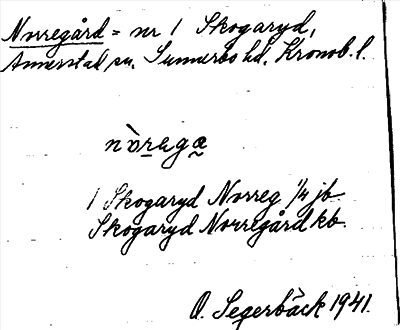 Norregård = nr 1 Skogaryd,
Annerstad sn. Sunnerbo hd. Kronob. l.
nòrega
1 Skogaryd Norreg 1/4 jb
Skogaryd Norregård kb.
O. Segerbäck 1941.